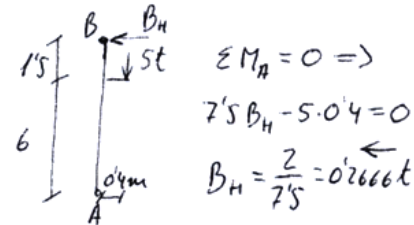 B B_H
1'5 5t
6
0'4m
A
ΣM_A = 0 =>
7'5 B_H - 5·0'4 = 0
B_H = 2/7'5 = 0'2666 t